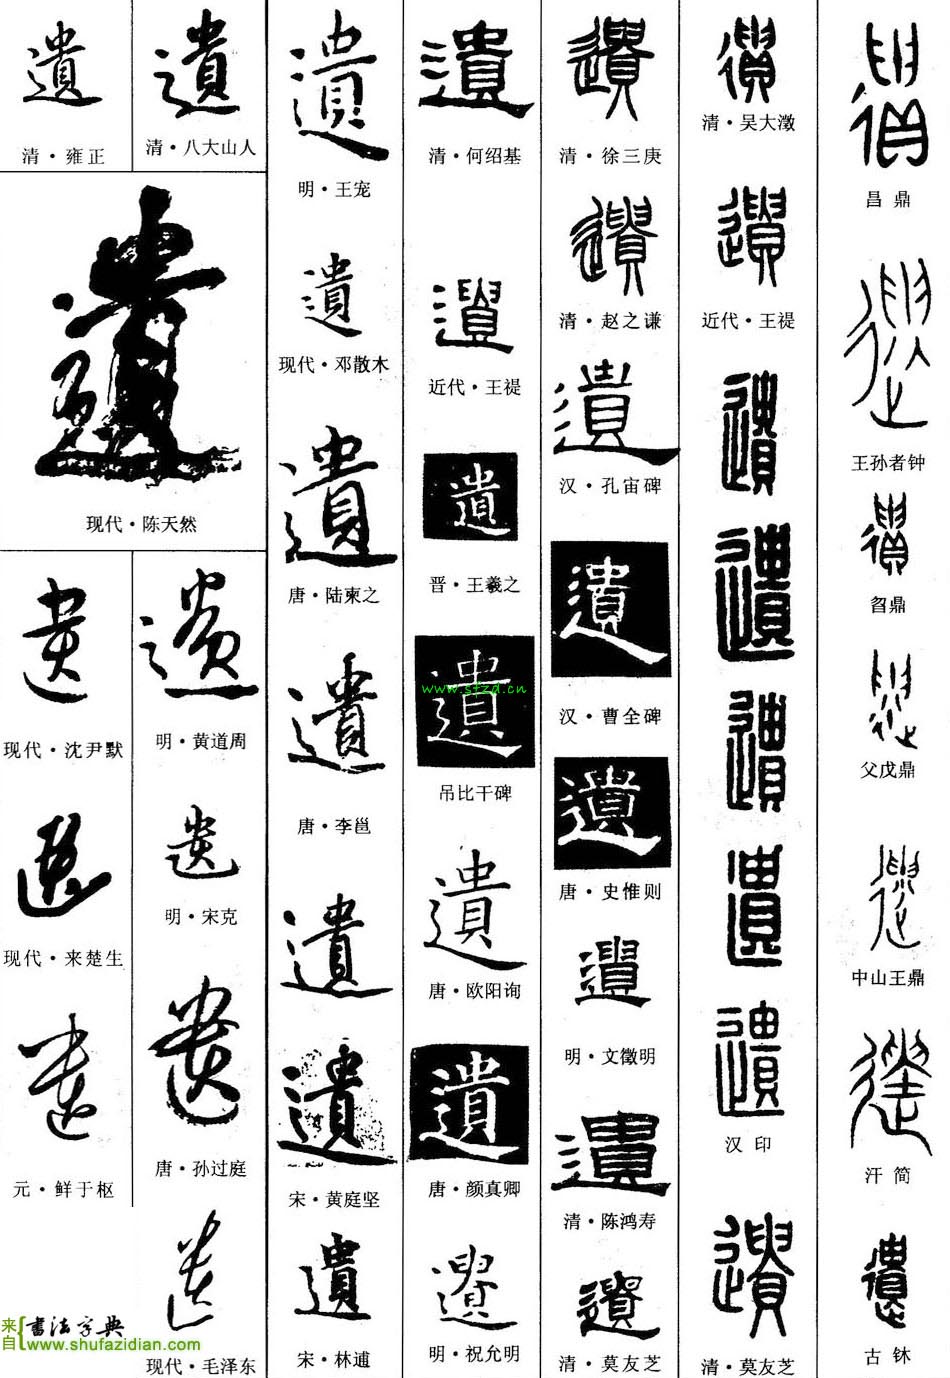 遺
清·雍正
遺
清·八大山人
遺
现代·陈天然
遺
现代·沈尹默
遺
现代·来楚生
遺
元·鲜于枢
遺
明·黄道周
遺
明·宋克
遺
唐·孙过庭
遺
现代·毛泽东
遺
明·王宠
遺
现代·邓散木
遺
唐·陆柬之
遺
唐·李邕
遺
遺
宋·黄庭坚
遺
宋·林逋
遺
清·何绍基
遺
近代·王禔
遺
晋·王羲之
遺
www.sfzd.cn
吊比干碑
遺
唐·欧阳询
遺
唐·颜真卿
遺
明·祝允明
遺
清·徐三庚
遺
清·赵之谦
遺
汉·孔宙碑
遺
汉·曹全碑
遺
唐·史惟则
遺
明·文徵明
遺
清·陈鸿寿
遺
清·莫友芝
遺
清·吴大澂
遺
近代·王禔
遺
遺
遺
遺
遺
汉印
遺
清·莫友芝
遺
昌鼎
遺
王孙者钟
遺
曶鼎
遺
父戊鼎
遺
中山王鼎
遺
汗简
遺
古鉥
来自
书法字典
www.shufazidian.com